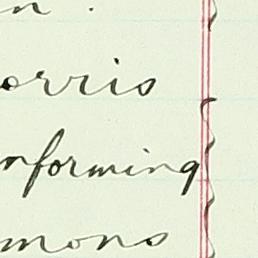 n.
orris
nforming
mons